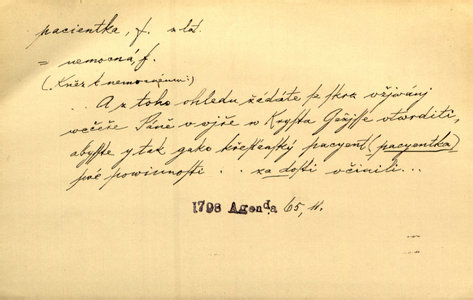 pacientka, f. z lat.
= nemocná, f.
(Kněz k nemocnému:)
.. A z toho ohledu žádáte se skrz vžjwánj
wečeře Páně v wjře w Krysta Gežjsse vtwrditi,
abysste y tak gako křestianský pacyent (pacyentka)
swé powinnosti .. za dosti včinili...
1798 Agenda 65, 11.